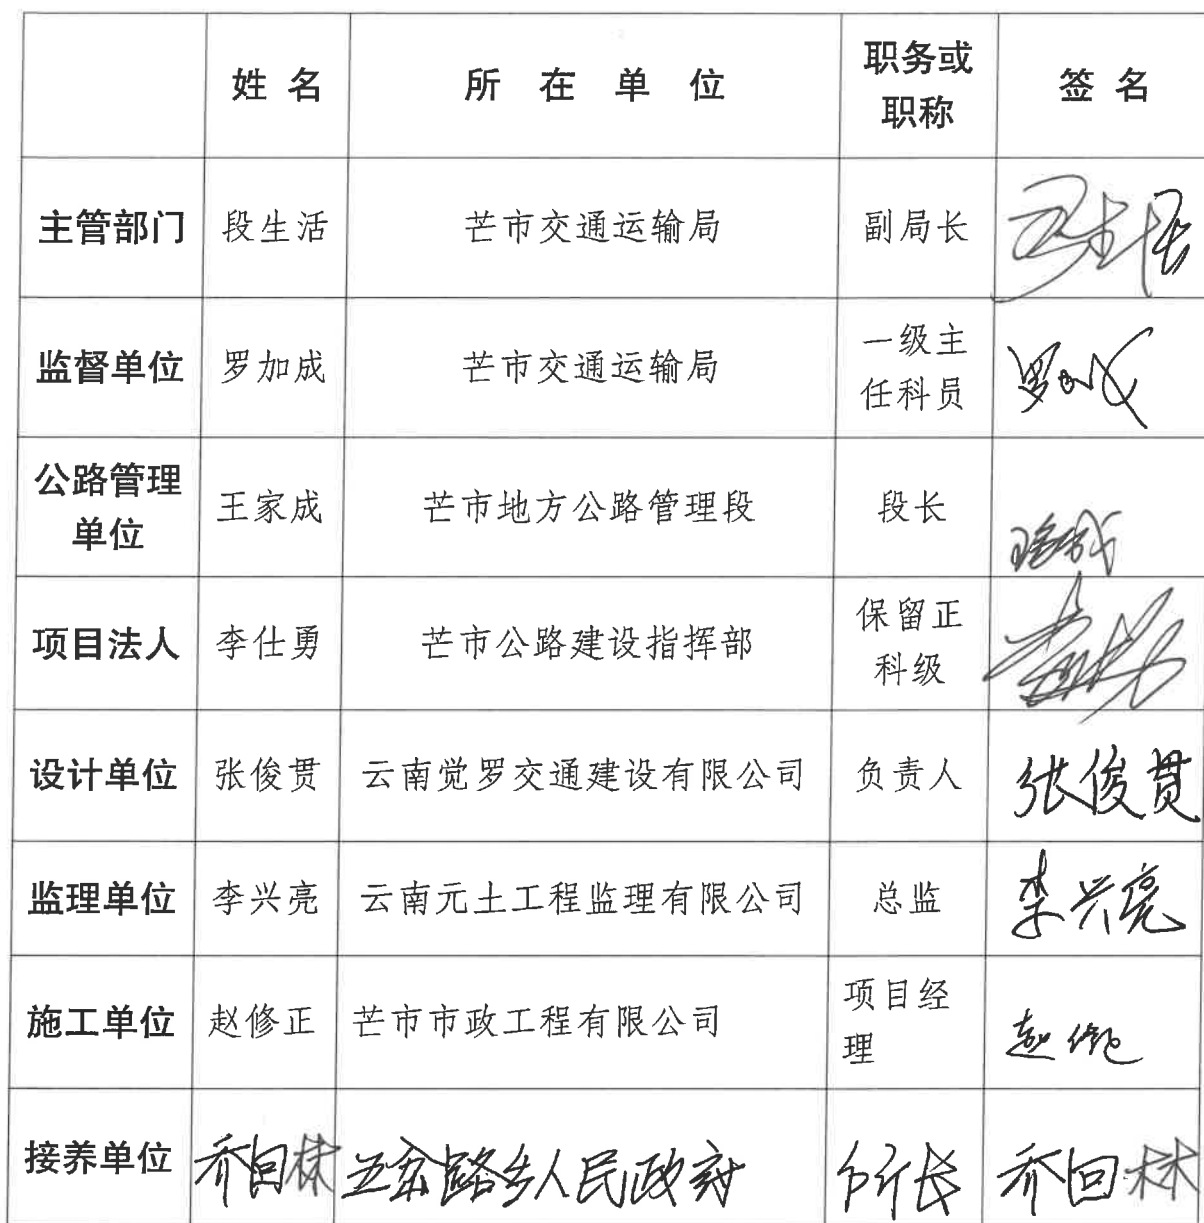 姓 名 所 在 单 位 职务或职称 签 名
主管部门 段生活 芒市交通运输局 副局长 段生活
监督单位 罗加成 芒市交通运输局 一级主任科员 罗加成
公路管理单位 王家成 芒市地方公路管理段 段长 王家成
项目法人 李仕勇 芒市公路建设指挥部 保留正科级
设计单位 张俊贯 云南觉罗交通建设有限公司 负责人 张俊贯
监理单位 李兴亮 云南元土工程监理有限公司 总监 李兴亮
施工单位 赵修正 芒市市政工程有限公司 项目经理 赵修正
接养单位 乔回林 五岔路乡人民政府 所长 乔回林